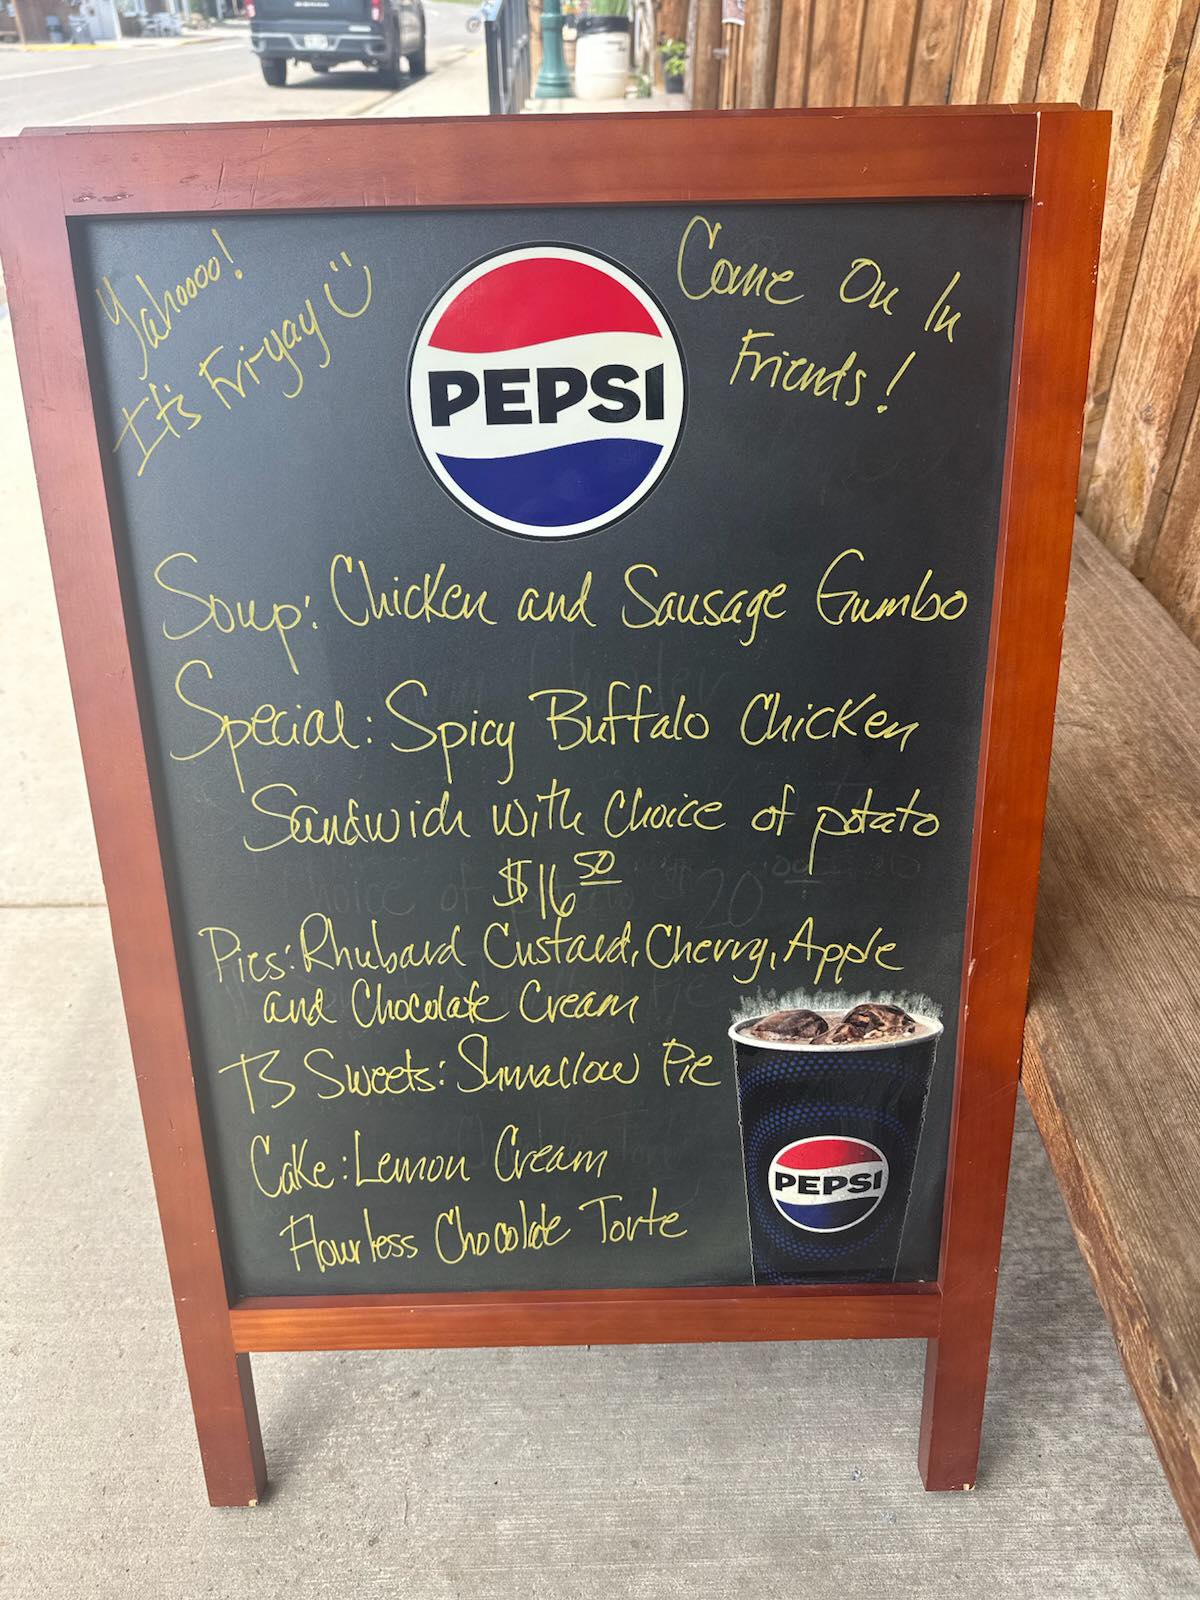 Yahoooo!
It's Fri-yay
Come On In
Friends!
PEPSI
Soup: Chicken and Sausage Gumbo
Special: Spicy Buffalo Chicken
Sandwich with choice of potato
$16 50
Pies: Rhubarb Custard, Cherry, Apple
and Chocolate Cream
T3 Sweets: Smallow Pie
Cake: Lemon Cream
Flourless Chocolate Torte
PEPSI